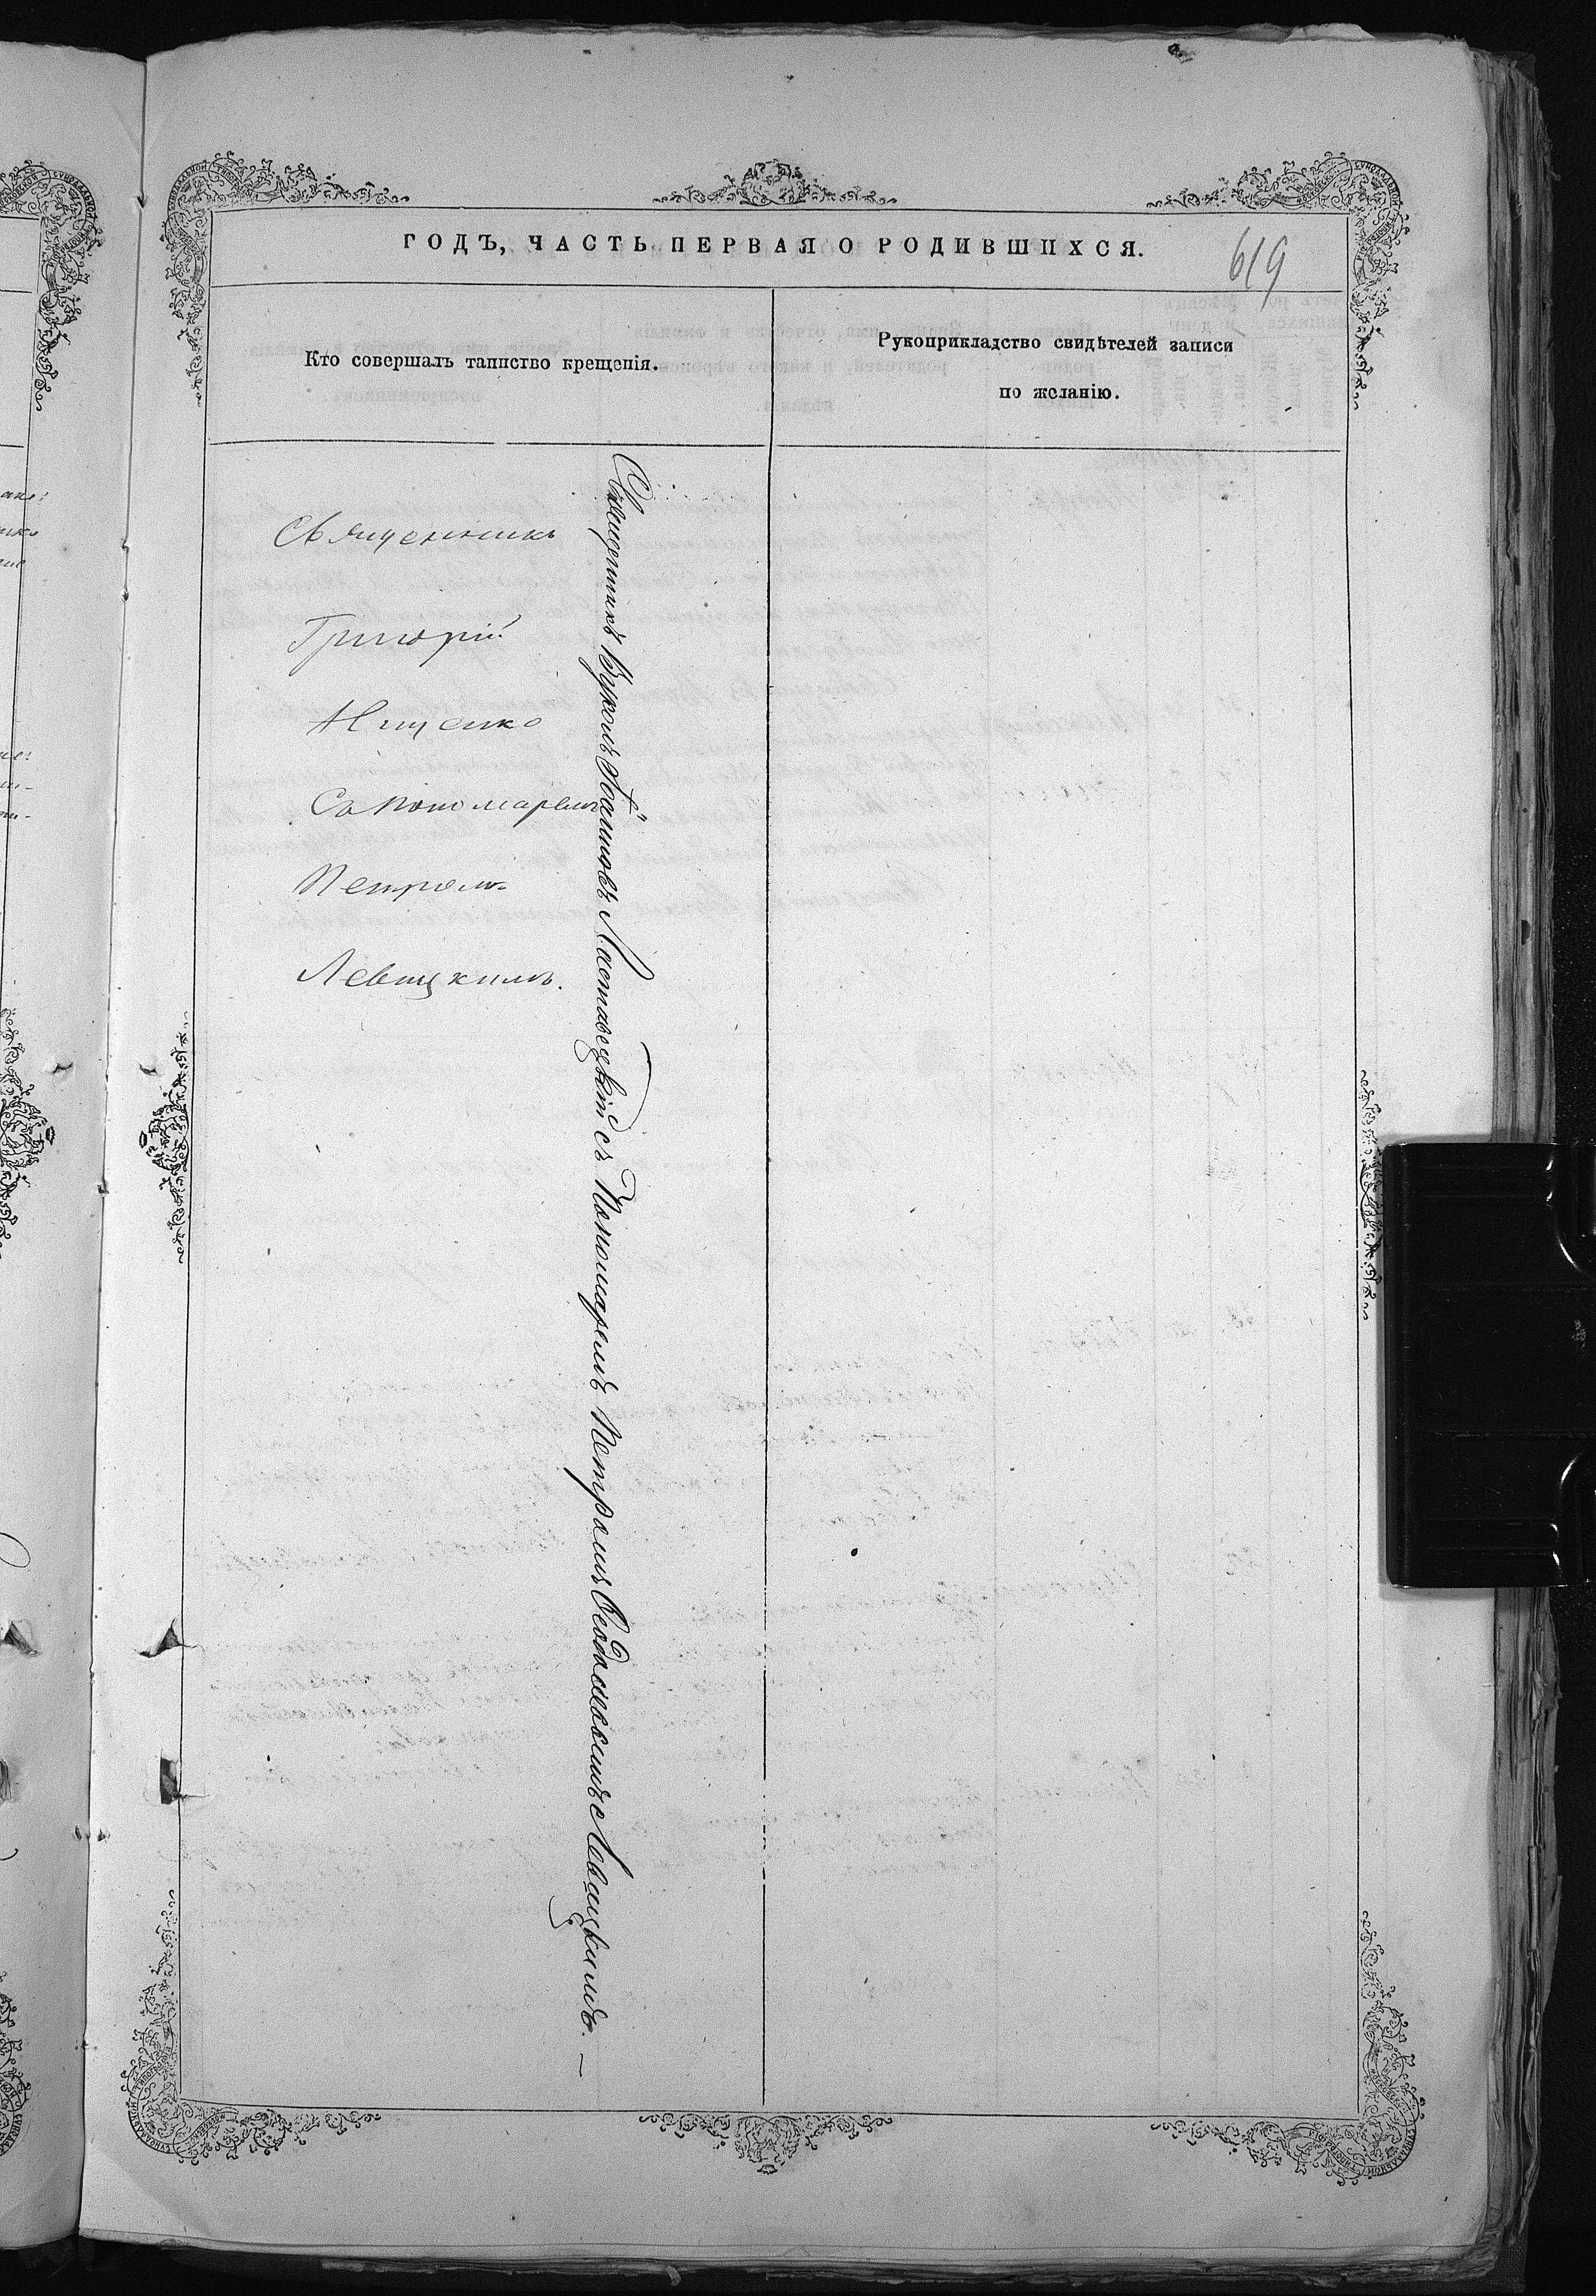 ГОДЪ, ЧАСТЬ ПЕРВАЯ О РОДИВШИХСЯ.
619
Кто совершалъ таинство крещенія.
Рукоприкладство свидѣтелей записи
по желанію.
Священникъ
Григорій
Ищенко
Съ пономаремъ
Петромъ
Левицкимъ.
Священникъ Вуколъ Іоанновъ Ластавецкій съ Пономаремъ Петромъ Ѳеодосіевымъ Левицкимъ. —